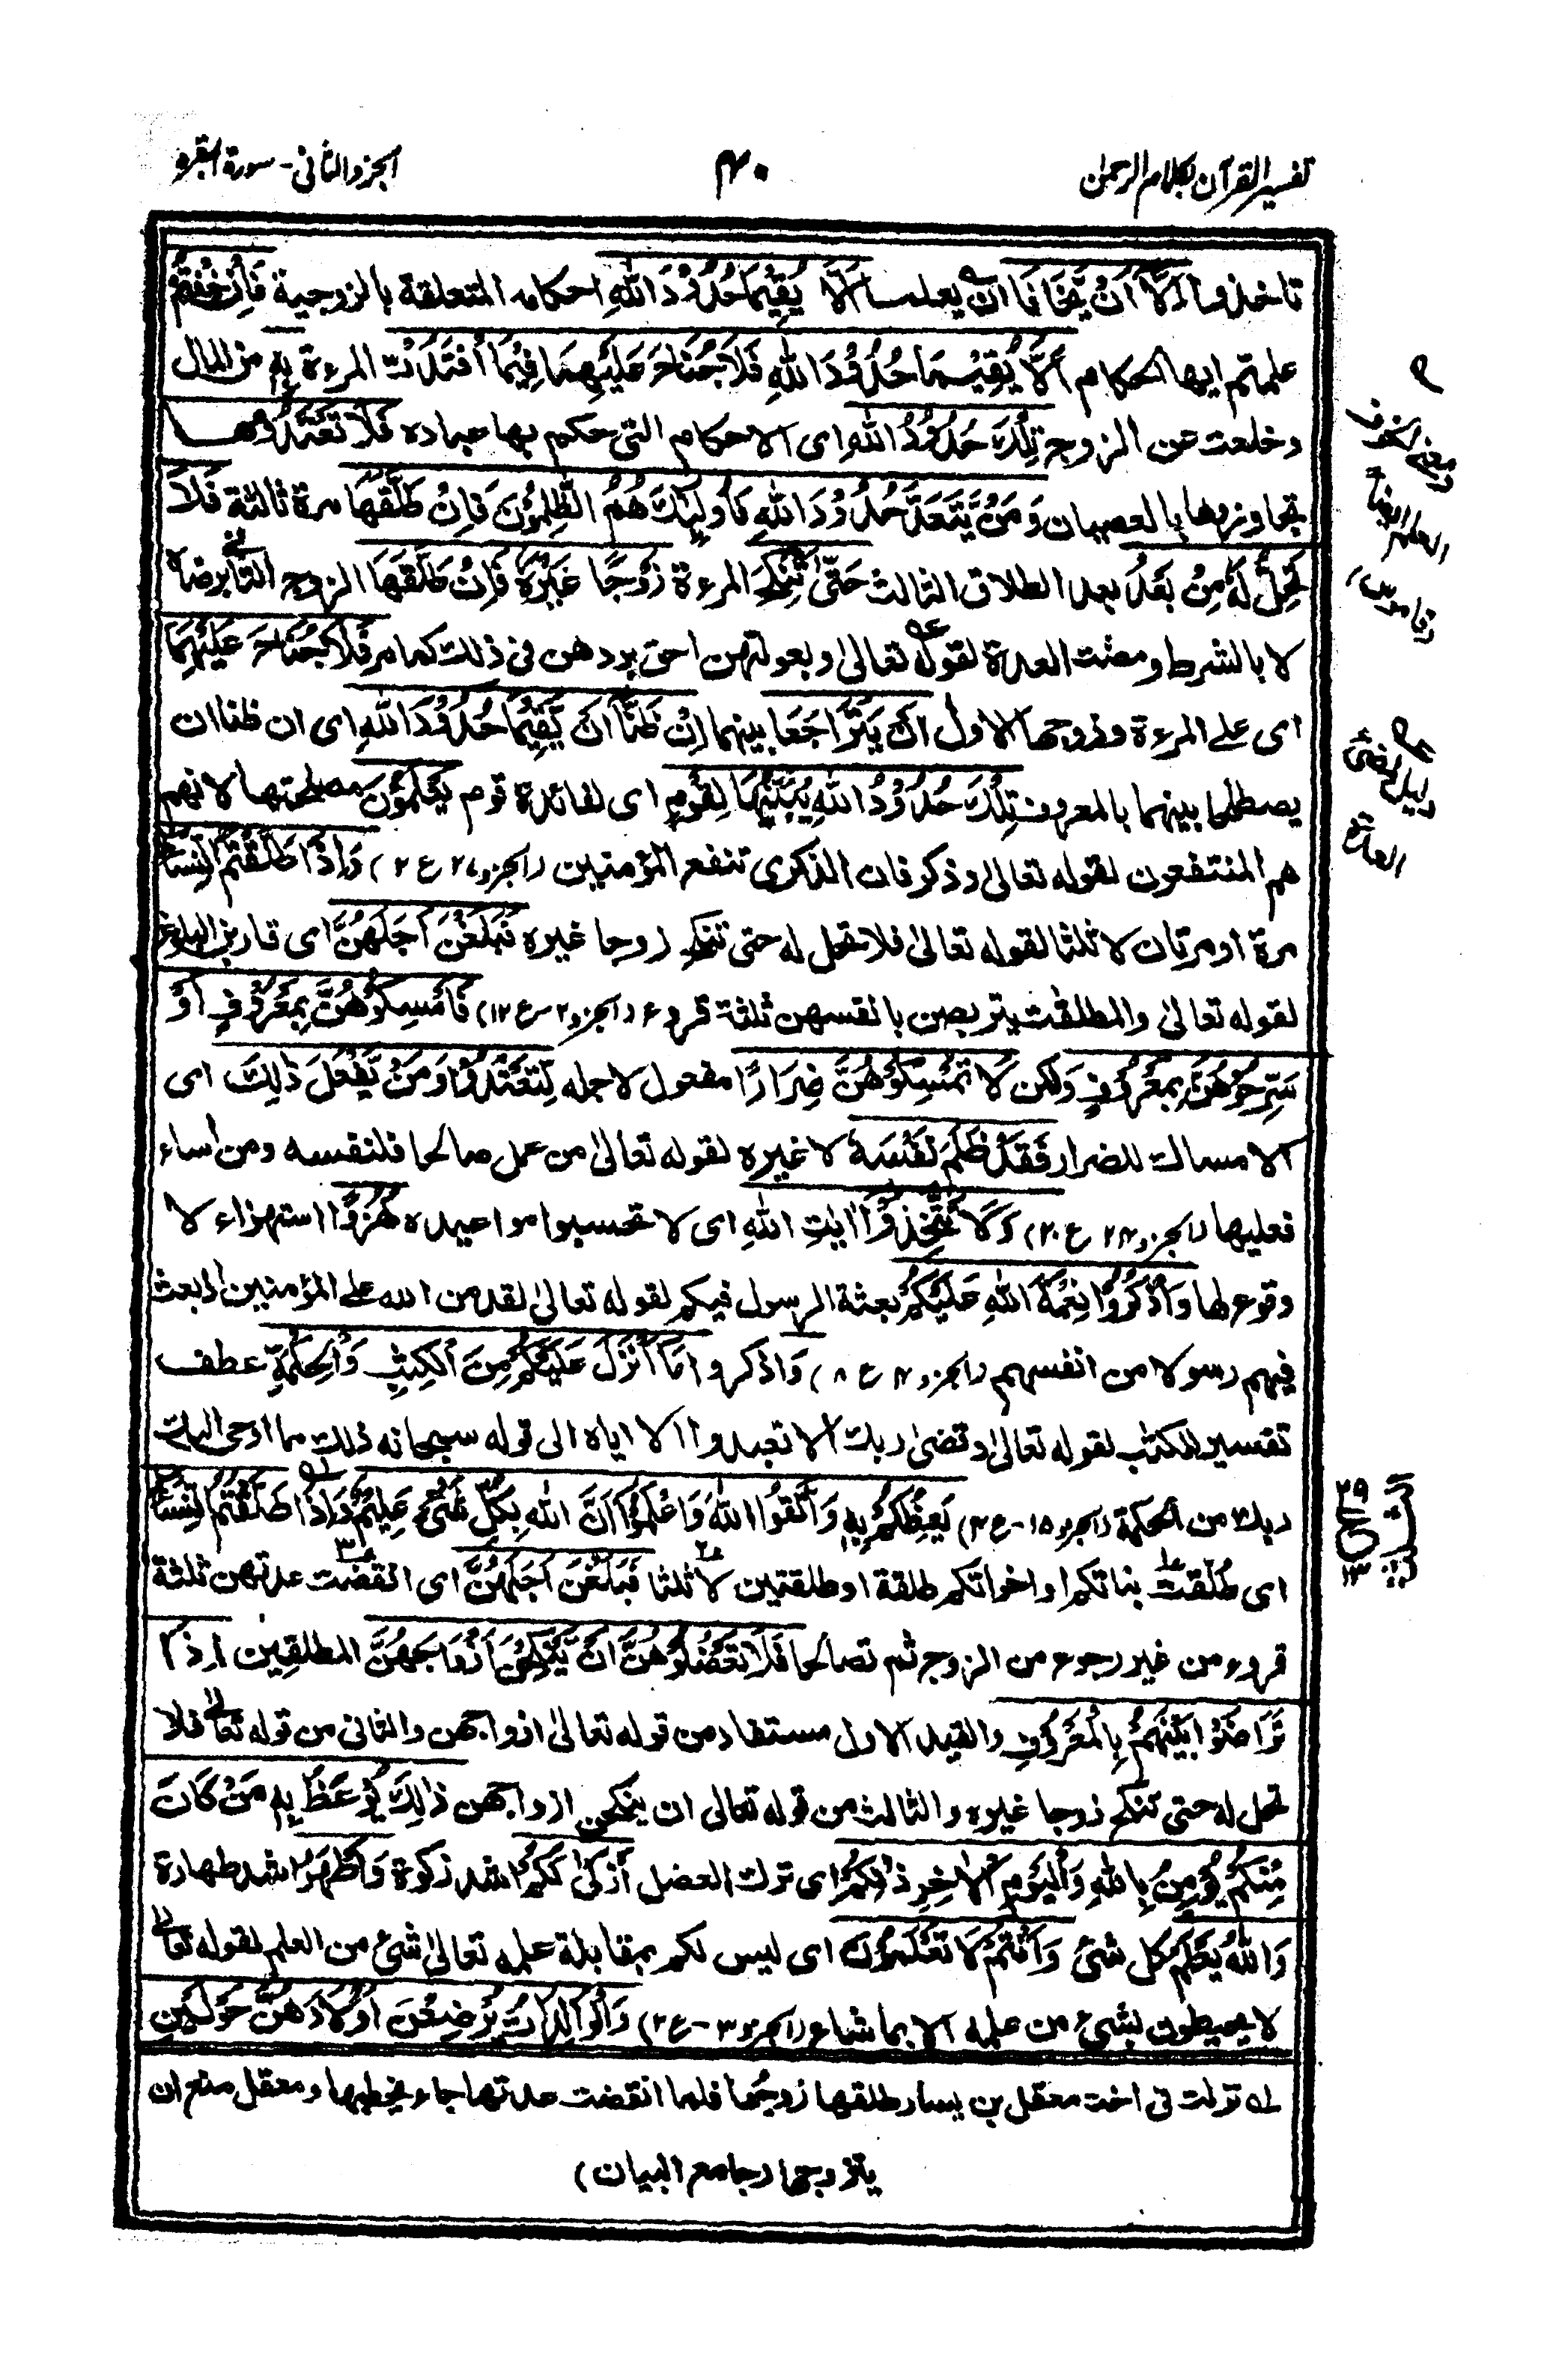 تفسير القرآن بكلام الرحمٰن
٤٠
الجزو الثانی - سورة البقرة
تاخذوا اِلَّا اَنْ يَّخَافَا ان يعلما اَلَّا يُقِيْمَا حُدُوْدَ اللّٰهِ احكامه المتعلقة بالزوجية فَاِنْ خِفْتُمْ
علمتم ايها الحكام اَلَّا يُقِيْمَا حُدُوْدَ اللّٰهِ فَلَا جُنَاحَ عَلَيْهِمَا فِيْمَا افْتَدَتْ المرءة بِهٖ من المال
وخلعت عن الزوج تِلْكَ حُدُوْدُ اللّٰهِ ای الاحكام التی حكم بها عباده فَلَا تَعْتَدُوْهَا
تجاوزوها بالعصيان وَمَنْ يَّتَعَدَّ حُدُوْدَ اللّٰهِ فَاُولٰٓئِكَ هُمُ الظّٰلِمُوْنَ فَاِنْ طَلَّقَهَا مرة ثالثة فَلَا
تَحِلُّ لَهٗ مِنْ بَعْدُ بعد الطلاق الثالث حَتّٰى تَنْكِحَ المرءة زَوْجًا غَيْرَهٗ فَاِنْ طَلَّقَهَا الزوج الثانی برضاه
لا بالشرط ومضت العدة لقوله تعالىٰ وبعولتهن احق بردهن فی ذلك كما مر فَلَا جُنَاحَ عَلَيْهِمَا
ای على المرءة وزوجها الاول اَنْ يَّتَرَاجَعَا بينهما اِنْ ظَنَّا اَنْ يُّقِيْمَا حُدُوْدَ اللّٰهِ ای ان ظنا ان
يصطلحا بينهما بالمعروف تِلْكَ حُدُوْدُ اللّٰهِ يُبَيِّنُهَا لِقَوْمٍ ای لفائدة قوم يَّعْلَمُوْنَ مصلحتها لانهم
هم المنتفعون لقوله تعالىٰ وذكر فان الذكری تنفع المؤمنين (الجزو ٢٧ ع ٢) وَاِذَا طَلَّقْتُمُ النِّسَآءَ
مرة او مرتان لا ثلثا لقوله تعالىٰ فلا تحل له حتى تنكح زوجا غيره فَبَلَغْنَ اَجَلَهُنَّ ای قاربن البلوغ
لقوله تعالىٰ والمطلقٰت يتربصن بانفسهن ثلثة قروء (الجزو ٢-ع ١٢) فَاَمْسِكُوْهُنَّ بِمَعْرُوْفٍ اَوْ
سَرِّحُوْهُنَّ بِمَعْرُوْفٍ ولكن لَا تُمْسِكُوْهُنَّ ضِرَارًا مفعول لاجله لِّتَعْتَدُوْا وَمَنْ يَّفْعَلْ ذٰلِكَ ای
الامساك للضرار فَقَدْ ظَلَمَ نَفْسَهٗ لا غيره لقوله تعالىٰ من عمل صالحا فلنفسه ومن اساء
فعليها (الجزو ٢٤ ع ٢٠) وَلَا تَتَّخِذُوْٓا اٰيٰتِ اللّٰهِ ای لا تحسبوا مواعيده هُزُوًا استهزاء لا
وقوع لها وَاذْكُرُوْا نِعْمَةَ اللّٰهِ عَلَيْكُمْ بعثة الرسول فيكم لقوله تعالىٰ لقد من الله على المؤمنين اذ بعث
فيهم رسولا من انفسهم (الجزو ٤ ع ٨) وَاذكروا مَآ اَنْزَلَ عَلَيْكُمْ مِّنَ الْكِتٰبِ وَالْحِكْمَةِ عطف
تفسير للكتٰب لقوله تعالىٰ وقضىٰ ربك الا تعبدوا الا اياه الى قوله سبحانه ذلك مما اوحى اليك
ربك من الحكمة (الجزو ١٥-ع ٣) يَعِظُكُمْ بِهٖ وَاتَّقُوا اللّٰهَ وَاعْلَمُوْٓا اَنَّ اللّٰهَ بِكُلِّ شَیْءٍ عَلِيْمٌ وَاِذَا طَلَّقْتُمُ النِّسَآءَ
ای طُلّقت بناتكم او اخواتكم طلقة او طلقتين لا ثلثا فَبَلَغْنَ اَجَلَهُنَّ ای انقضت عدتهن ثلثة
قروء من غير رجوع من الزوج ثم تصالحا فَلَا تَعْضُلُوْهُنَّ اَنْ يَّنْكِحْنَ اَزْوَاجَهُنَّ المطلقين اِذَا
تَرَاضَوْا بَيْنَهُمْ بِالْمَعْرُوْفِ والقيد الاول مستفاد من قوله تعالىٰ ازواجهن والثانی من قوله تعالىٰ فلا
تحل له حتى تنكح زوجا غيره والثالث من قوله تعالى ان ينكحن ازواجهن ذٰلِكَ يُوْعَظُ بِهٖ مَنْ كَانَ
مِنْكُمْ يُؤْمِنُ بِاللّٰهِ وَالْيَوْمِ الْاٰخِرِ ذٰلِكُمْ ای ترك العضل اَزْكٰى لَكُمْ اشد زكوة وَاَطْهَرُ اشد طهارة
وَاللّٰهُ يَعْلَمُ كل شئ وَاَنْتُمْ لَا تَعْلَمُوْنَ ای ليس لكم بمقابلة علمه تعالىٰ شئ من العلم لقوله تعالىٰ
لا يحيطون بشیء من علمه الا بما شاء (الجزو ٣-ع ٢) وَالْوَالِدٰتُ يُرْضِعْنَ اَوْلَادَهُنَّ حَوْلَيْنِ
له نزلت فی اخت معقل بن يسار طلقها زوجها فلما انقضت عدتها جاء يخطبها ومعقل منع ان
يتزوجها (جامع البيان)
العلم ايضا
قاموس
دليل لمضی
العدة
٢٩
ع
١٣